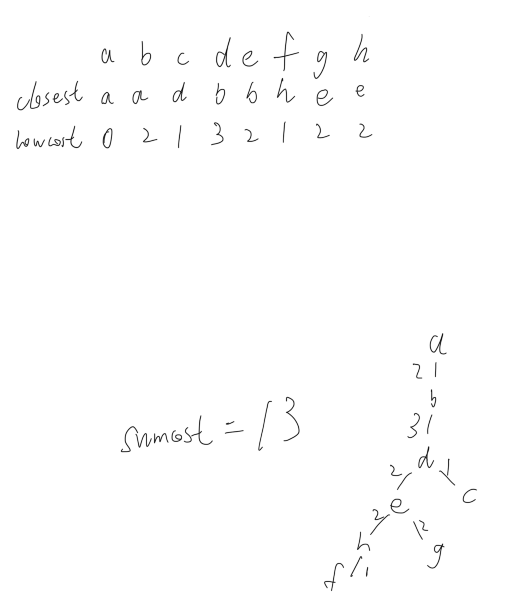 a b c d e f g h
closest a a d b b h e e
lowcost 0 2 1 3 2 1 2 2
a
2
b
3
sumcost = 13
d
2 1
c
e
2 2
h
g
f 1